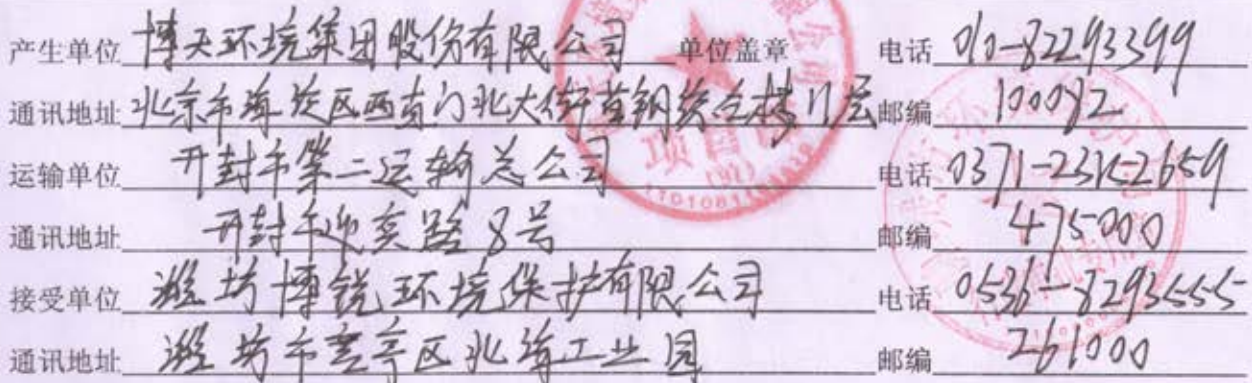 产生单位 博天环境集团股份有限公司 单位盖章 电话 010-82293399
通讯地址 北京市海淀区西直门北大街首钢综合楼11层 邮编 100082
运输单位 开封市第二运输总公司 电话 0371-2315-2659
通讯地址 开封市迎宾路8号 邮编 475000
接受单位 潍坊博锐环境保护有限公司 电话 0536-8293555
通讯地址 潍坊市寒亭区北海工业园 邮编 261000
项目
(97)